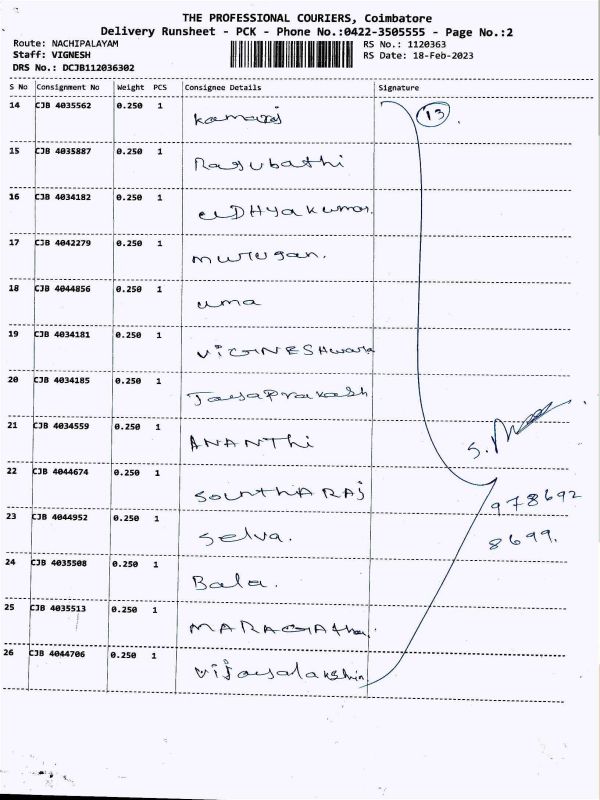 THE PROFESSIONAL COURIERS, Coimbatore
Delivery Runsheet - PCK - Phone No.:0422-3505555 - Page No.:2
Route: NACHIPALAYAM RS No.: 1120363
Staff: VIGNESH RS Date: 18-Feb-2023
DRS No.: DCJB112036302
S No Consignment No Weight PCS Consignee Details Signature
14 CJB 4035562 0.250 1 Kamaraj 13.
15 CJB 4035887 0.250 1 Ragubathi
16 CJB 4034182 0.250 1
17 CJB 4042279 0.250 1 Murugan.
18 CJB 4044856 0.250 1 uma
19 CJB 4034181 0.250 1 VIGNESHwara
20 CJB 4034185 0.250 1 Jayaprakash
21 CJB 4034559 0.250 1 ANANTHi
22 CJB 4044674 0.250 1 SounthARAj
978692
23 CJB 4044952 0.250 1 Selva. 8699.
24 CJB 4035508 0.250 1 Bala.
25 CJB 4035513 0.250 1
26 CJB 4044706 0.250 1